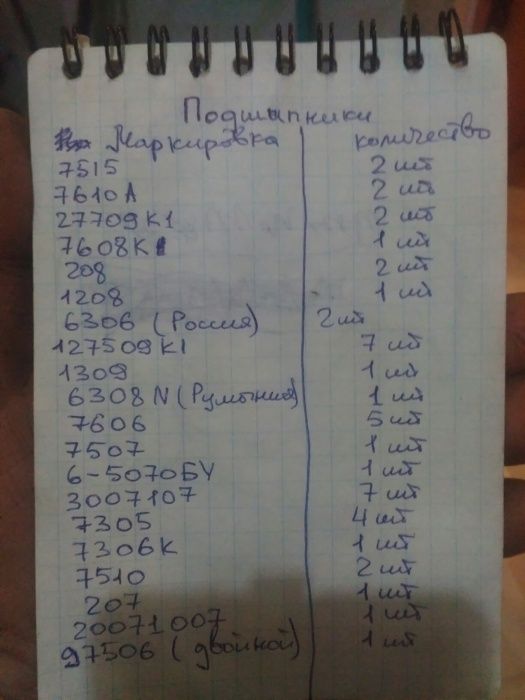 Подшипники
Маркировка количество
7515 2 шт
7610А 2 шт
27709К1 2 шт
7608К1 1 шт
208 2 шт
1208 1 шт
6306 (Россия) 2 шт
127509К1 7 шт
1309 1 шт
6308 N (Румыния) 1 шт
7606 5 шт
7507 1 шт
6-5070БУ 1 шт
3007107 7 шт
7305 4 шт
7306К 1 шт
7510 2 шт
207 1 шт
20071007 1 шт
97506 (двойной) 1 шт